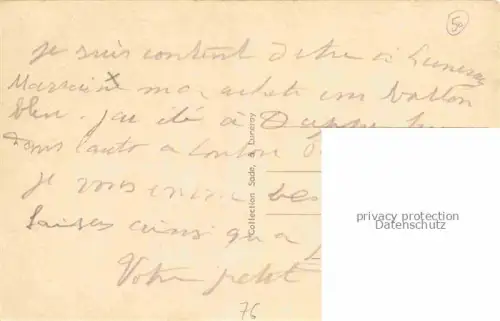 je suis content d'etre à Luneray
m'a acheté un ballon
bleu. j'ai été à Dieppe
Dans l'auto a tonton
je vous envoie
baisers ainsi qu'a
Votre petit
Collection Sade, à Luneray
50
76
privacy protection
Datenschutz